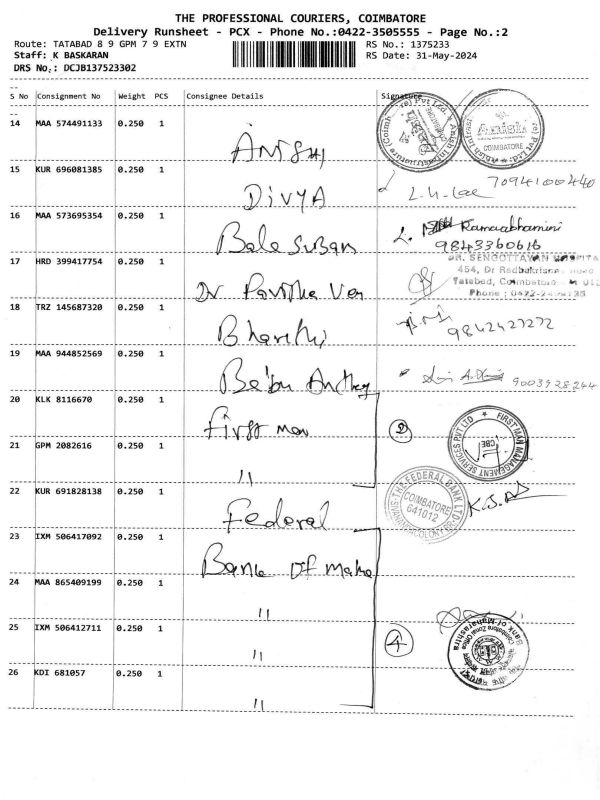 THE PROFESSIONAL COURIERS, COIMBATORE
Delivery Runsheet - PCX - Phone No.:0422-3505555 - Page No.:2
Route: TATABAD 8 9 GPM 7 9 EXTN RS No.: 1375233
Staff: K BASKARAN RS Date: 31-May-2024
DRS No.: DCJB137523302
S No Consignment No Weight PCS Consignee Details Signature
14 MAA 574491133 0.250 1
COIMBATORE
15 KUR 696081385 0.250 1 DIVYA 7094100440
16 MAA 573695354 0.250 1 Bala Suban 9843360616
17 HRD 399417754 0.250 1 Dr
DR. SENGOTTAYAN HOSPITA
454, Dr Radhakrishna
Tatabad, Coimbatore
Phone :
18 TRZ 145687320 0.250 1 Bharathi 9842427272
19 MAA 944852569 0.250 1 Babu Anthony 9003928244
20 KLK 8116670 0.250 1 First man 2
FIRST MAN MANAGEMENT SERVICES PVT LTD
CBE
21 GPM 2082616 0.250 1 "
22 KUR 691828138 0.250 1 Federal
THE FEDERAL BANK LTD
COIMBATORE
641012
23 IXM 506417092 0.250 1 Bank of Maha
24 MAA 865409199 0.250 1 "
25 IXM 506412711 0.250 1 " 4
Bank of Maharashtra
Coimbatore Zonal Office
26 KDI 681057 0.250 1 "